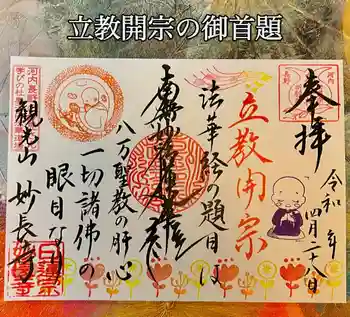 立教開宗の御首題
奉拝
令和 年
四月二十八日
立教開宗
法華経の題目は
南無妙法蓮華経
八万聖教の肝心
一切諸佛の
眼目なり
観光山 妙長寺
河内長野
学びの社
日蓮宗